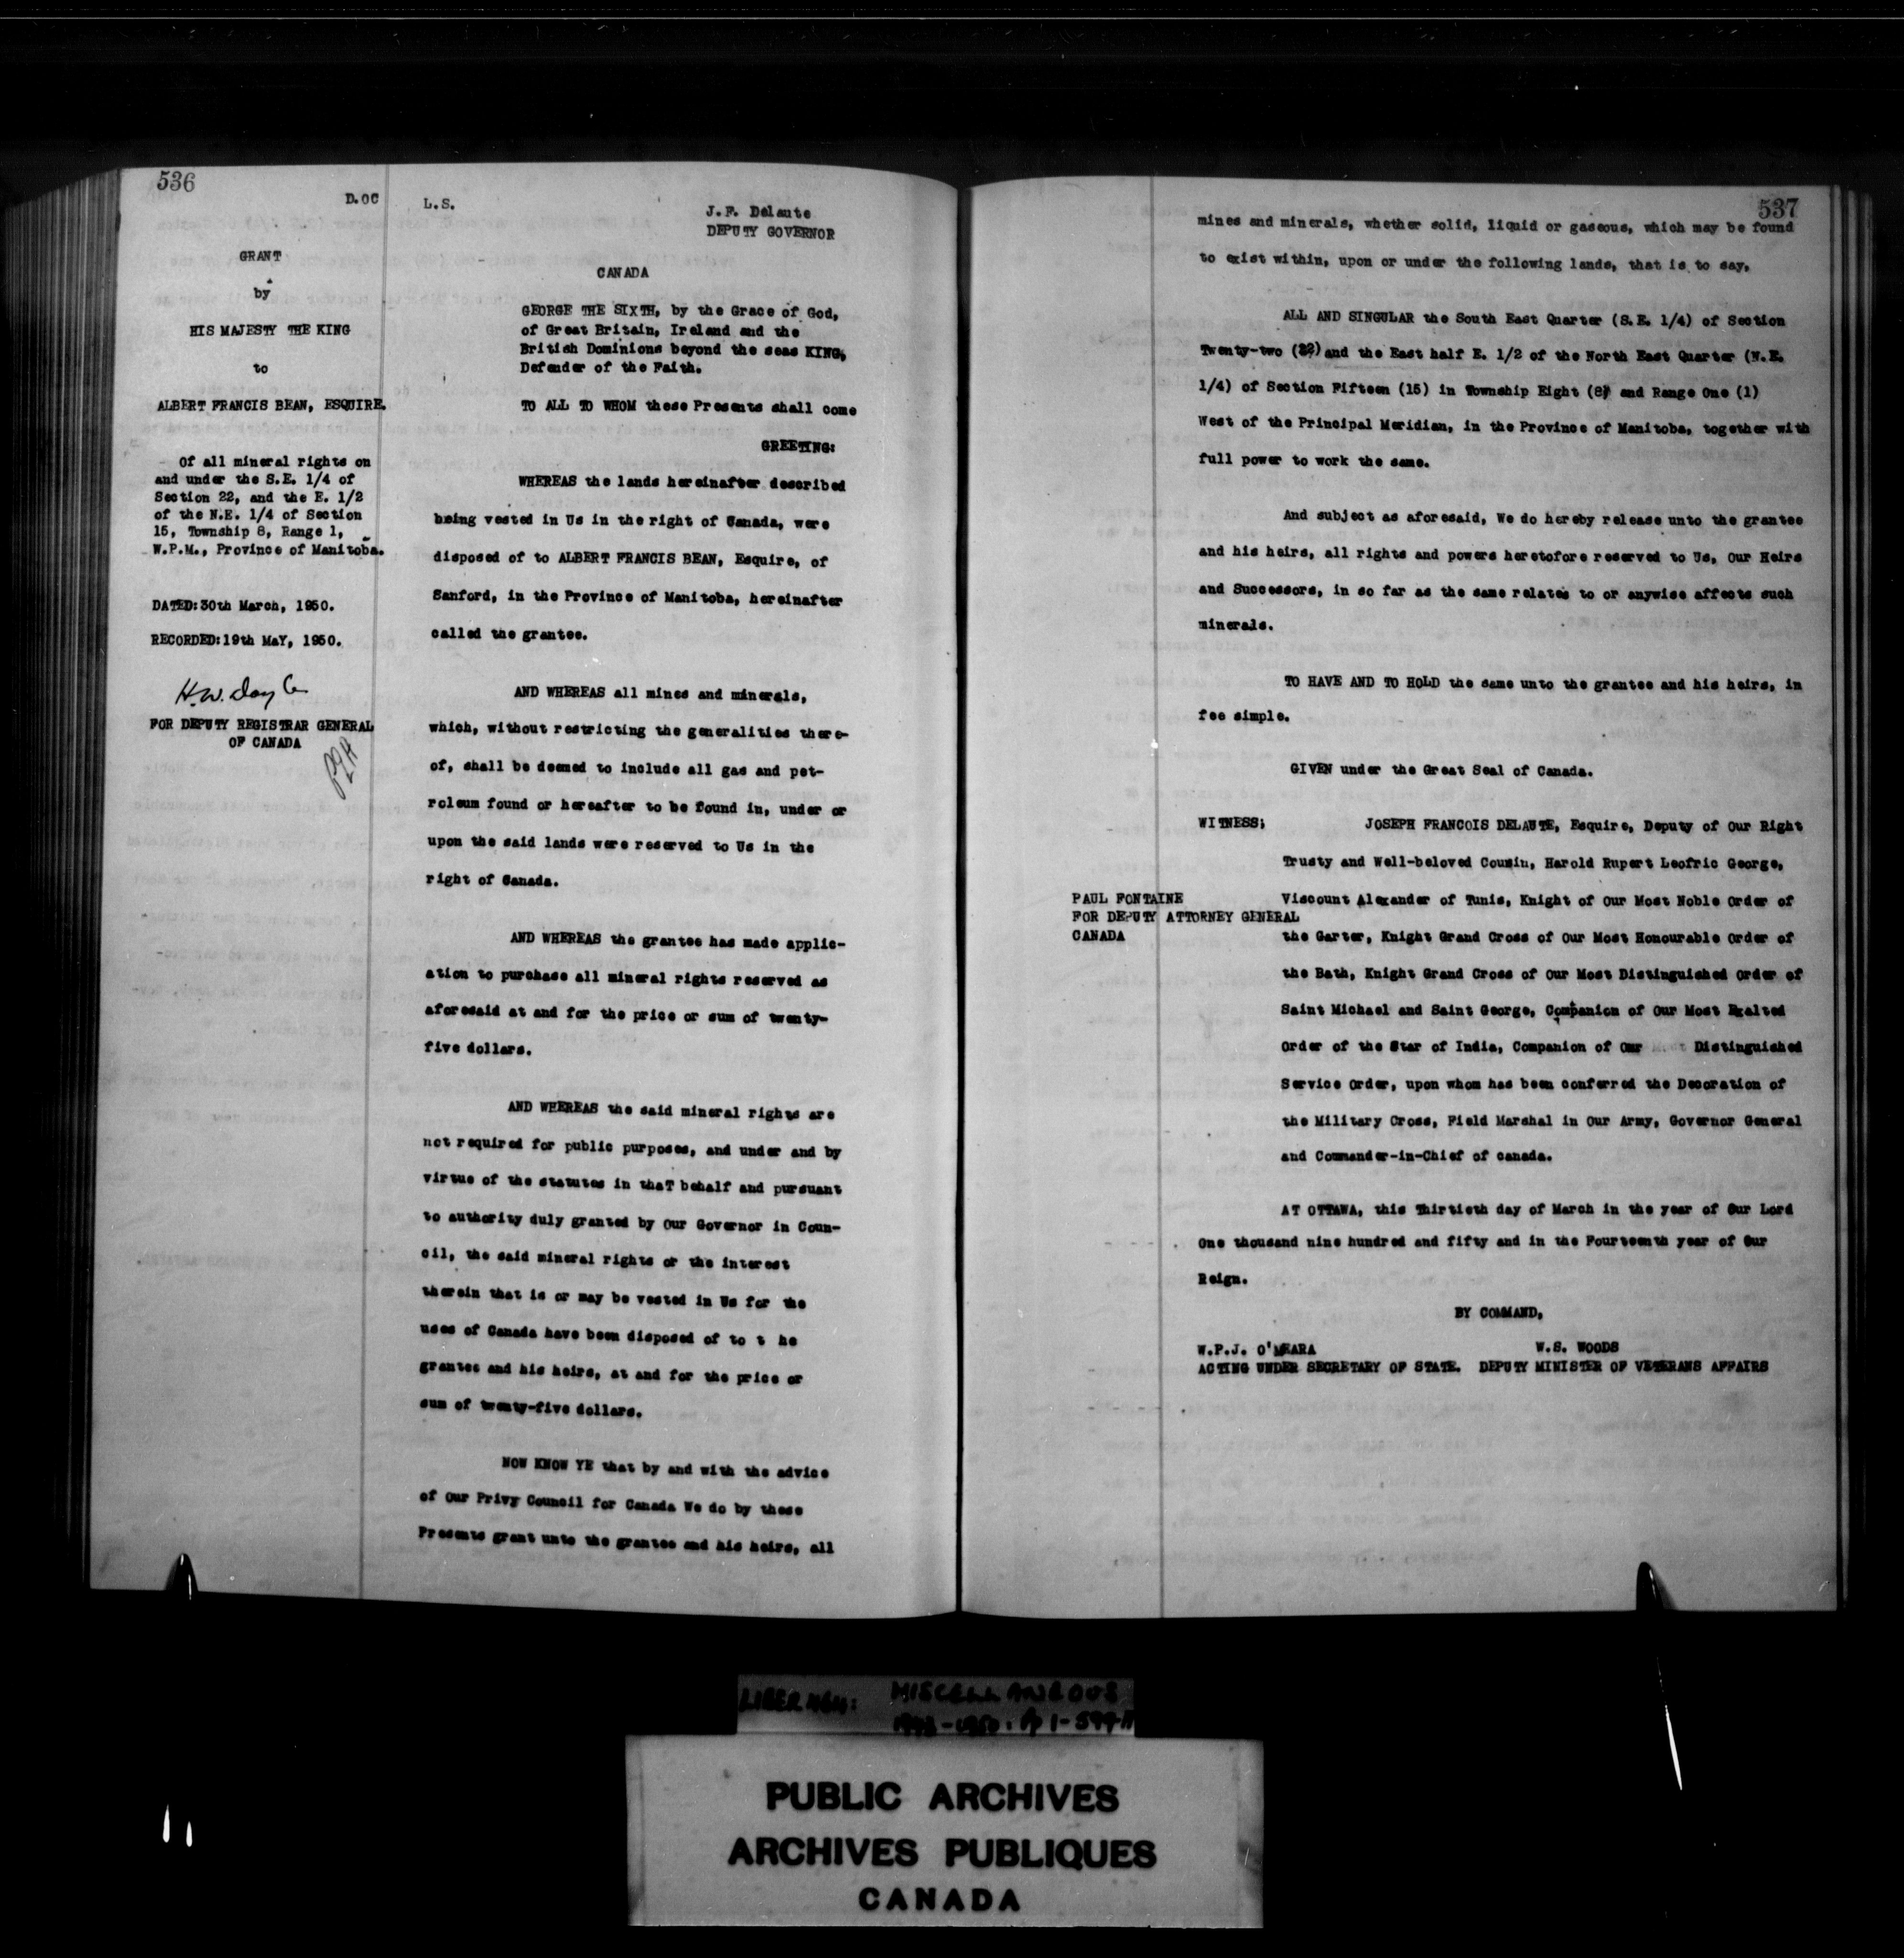 536
D.OC
GRANT
by
HIS MAJESTY THE KING
to
ALBERT FRANCIS BEAN, ESQUIRE.
Of all mineral rights on
and under the S.E. 1/4 of
Section 22, and the E. 1/2
of the N.E. 1/4 of Section
15, Township 8, Range 1,
W.P.M., Province of Manitoba.
DATED:30th March, 1950.
RECORDED:19th MaY, 1950.
H.W. Doyle
FOR DEPUTY REGISTRAR GENERAL
OF CANADA
L.S.
J.F. Delaute
DEPUTY GOVERNOR
CANADA
GEORGE THE SIXTH, by the Grace of God,
of Great Britain, Ireland and the
British Dominions beyond the seas KING,
Defender of the Faith.
TO ALL TO WHOM these Presents shall come
GREETING:
WHEREAS the lands hereinafter described
being vested in Us in the right of Canada, were
disposed of to ALBERT FRANCIS BEAN, Esquire, of
Sanford, in the Province of Manitoba, hereinafter
called the grantee.
AND WHEREAS all mines and minerals,
which, without restricting the generalities there-
of, shall be deemed to include all gas and pet-
roleum found or hereafter to be found in, under or
upon the said lands were reserved to Us in the
right of Canada.
AND WHEREAS the grantee has made applic-
ation to purchase all mineral rights reserved as
aforesaid at and for the price or sum of twenty-
five dollars.
AND WHEREAS the said mineral rights are
not required for public purposes, and under and by
virtue of the statutes in thaT behalf and pursuant
to authority duly granted by Our Governor in Coun-
cil, the said mineral rights or the interest
therein that is or may be vested in Us for the
uses of Canada have been disposed of to t he
grantee and his heirs, at and for the price or
sum of twenty-five dollars.
NOW KNOW YE that by and with the advice
of Our Privy Council for Canada We do by these
Presents grant unto the grantee and his heirs, all
537
mines and minerals, whether solid, liquid or gaseous, which may be found
to exist within, upon or under the following lands, that is to say,
ALL AND SINGULAR the South East Quarter (S.E. 1/4) of Section
Twenty-two (22) and the East half E. 1/2 of the North East Quarter (N.E.
1/4) of Section Fifteen (15) in Township Eight (8) and Range One (1)
West of the Principal Meridian, in the Province of Manitoba, together with
full power to work the same.
And subject as aforesaid, We do hereby release unto the grantee
and his heirs, all rights and powers heretofore reserved to Us, Our Heirs
and Successors, in so far as the same relates to or anywise affects such
minerals.
TO HAVE AND TO HOLD the same unto the grantee and his heirs, in
fee simple.
GIVEN under the Great Seal of Canada.
WITNESS; JOSEPH FRANCOIS DELAUTE, Esquire, Deputy of Our Right
Trusty and Well-beloved Cousin, Harold Rupert Leofric George,
Viscount Alexander of Tunis, Knight of Our Most Noble Order of
the Garter, Knight Grand Cross of Our Most Honourable Order of
the Bath, Knight Grand Cross of Our Most Distinguished Order of
Saint Michael and Saint George, Companion of Our Most Exalted
Order of the Star of India, Companion of Our Distinguished
Service Order, upon whom has been conferred the Decoration of
the Military Cross, Field Marshal in Our Army, Governor General
and Commander-in-Chief of canada.
PAUL FONTAINE
FOR DEPUTY ATTORNEY GENERAL
CANADA
AT OTTAWA, this Thirtieth day of March in the year of Our Lord
One thousand nine hundred and fifty and in the Fourteenth year of Our
Reign.
BY COMMAND,
W.P.J. O'MEARA
ACTING UNDER SECRETARY OF STATE.
W.S. WOODS
DEPUTY MINISTER OF VETERANS AFFAIRS
LIBER 464: MISCELLANEOUS
PUBLIC ARCHIVES
ARCHIVES PUBLIQUES
CANADA